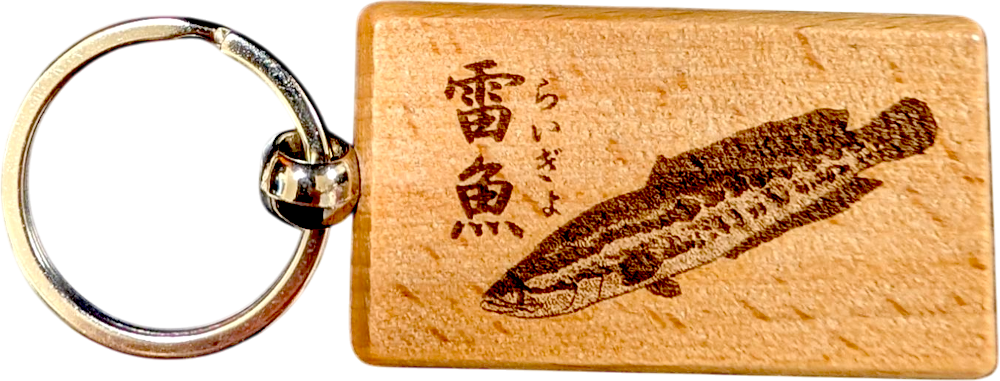 雷魚
らいぎょ